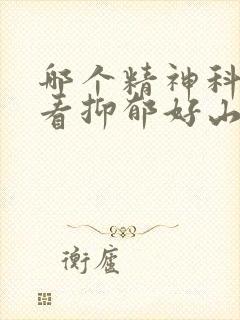 哪个精神科
看抑郁好山
衡庐